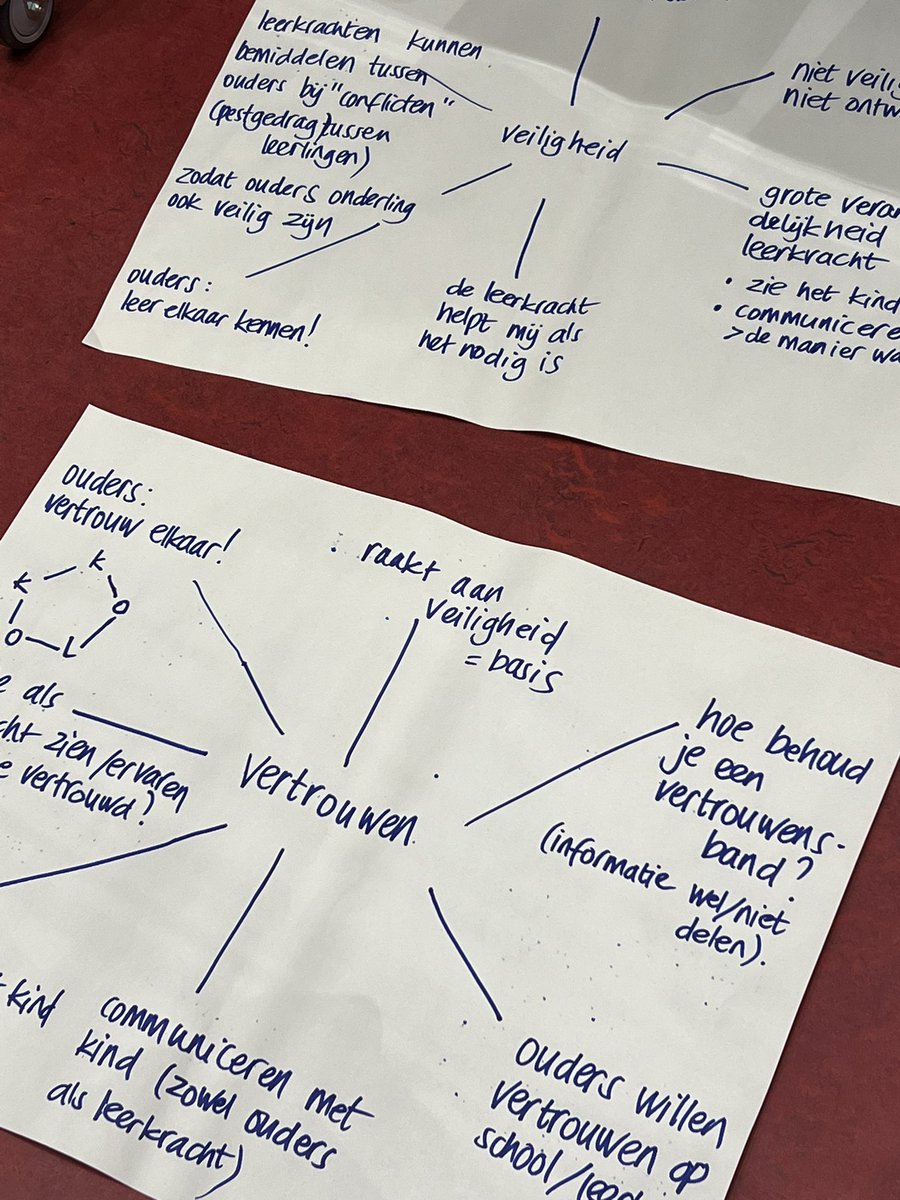 leerkrachten kunnen
bemiddelen tussen
ouders bij "conflicten"
(pestgedrag) tussen
leerlingen)
zodat ouders onderling
ook veilig zijn
ouders:
leer elkaar kennen!
veiligheid
niet veilig
niet
grote
delijkheid
leerkracht
• zie het kind
•
> de manier
de leerkracht
helpt mij als
het nodig is
ouders:
vertrouw elkaar!
K K
O L O
als
zien/ervaren
vertrouwd?
raakt aan
veiligheid
= basis
Vertrouwen
hoe behoud
je een
vertrouwens-
band?
(informatie wel/niet
delen).
kind
communiceren met
kind (zowel ouders
als leerkracht)
ouders willen
vertrouwen op
school/